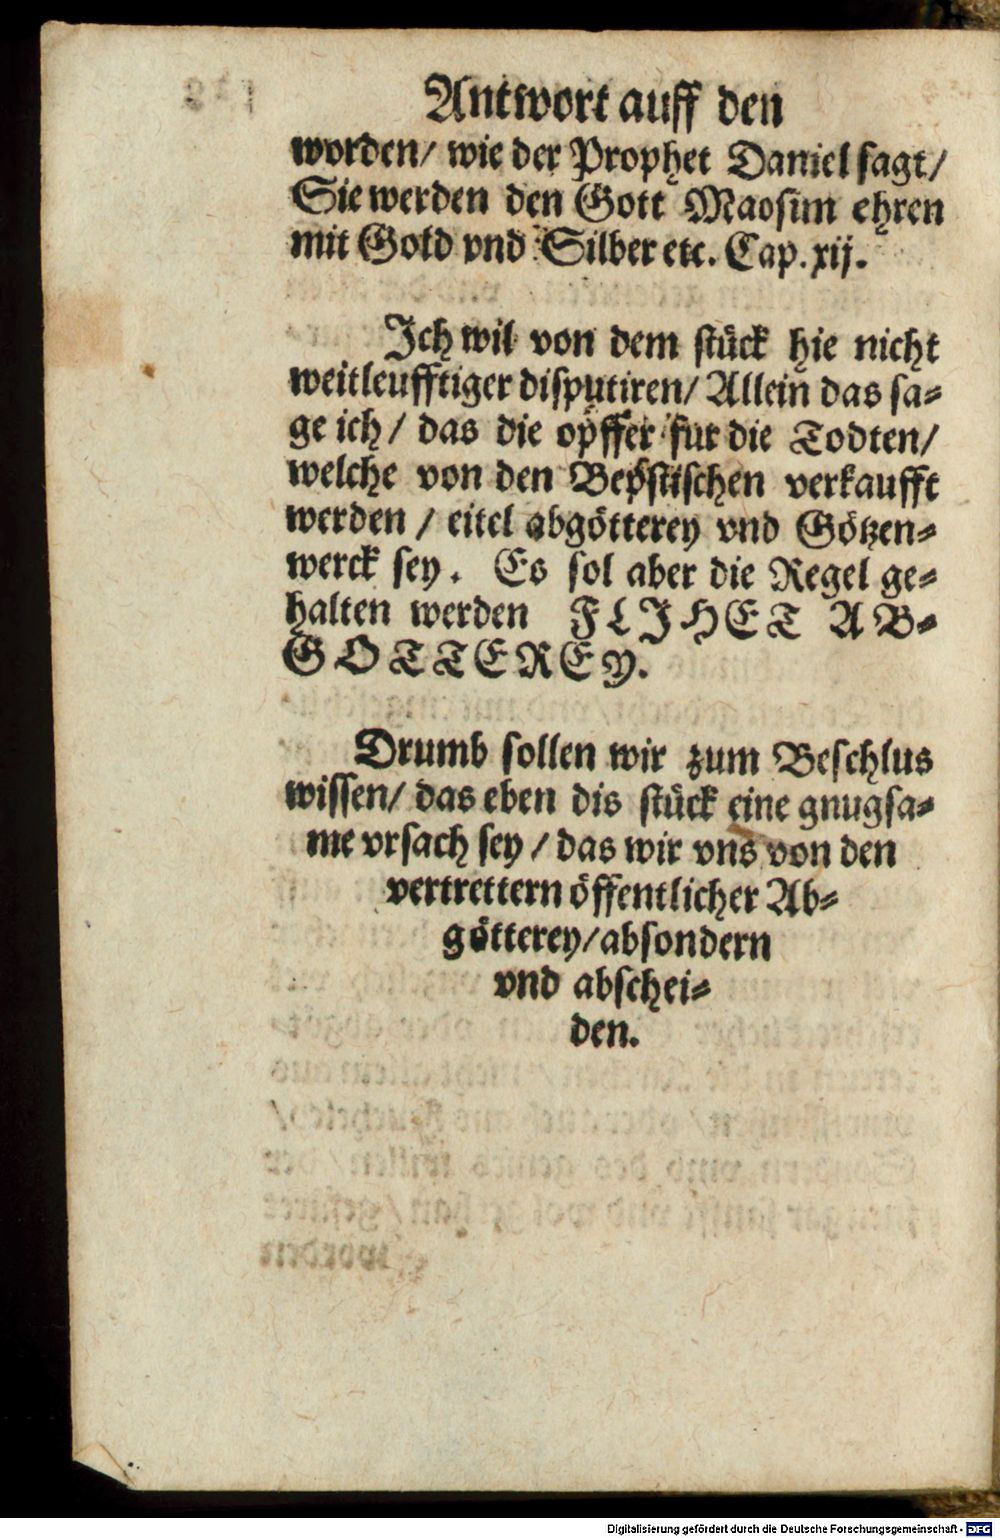 Antwort auff den
worden/ wie der Prophet Daniel sagt/
Sie werden den Gott Maosim ehren
mit Gold vnd Silber etc. Cap. xij.
Jch wil von dem stück hie nicht
weitleufftiger disputiren/ Allein das sa⸗
ge ich/ das die opffer fur die Todten/
welche von den Bepstischen verkaufft
werden/ eitel abgötterey vnd Götzen⸗
werck sey. Es sol aber die Regel ge⸗
halten werden FLJHET AB⸗
GOTTEREY.
Drumb sollen wir zum Beschlus
wissen/ das eben dis stück eine gnugsa⸗
me vrsach sey/ das wir vns von den
vertrettern öffentlicher Ab⸗
götterey/absondern
vnd abschei⸗
den.
Digitalisierung gefördert durch die Deutsche Forschungsgemeinschaft - DFG